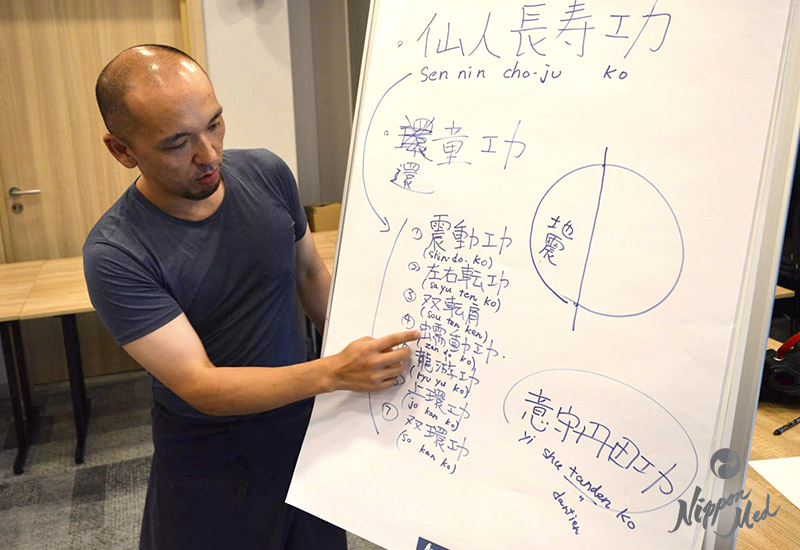 ・仙人長寿功
sen nin cho-ju ko
・環童功
還
① 震動功
(shin do-ko)
② 左右転功
(sayu ten ko)
③ 双転肩
(sou ten ken)
④ 蠕動功.
(zen do ko)
龍游功
(ryu yu ko)
上環功
(jo kan ko)
⑦ 双環功
(so kan ko)
地震
意守丹田功
yi shu tanden ko
dantien
Nippon
Med